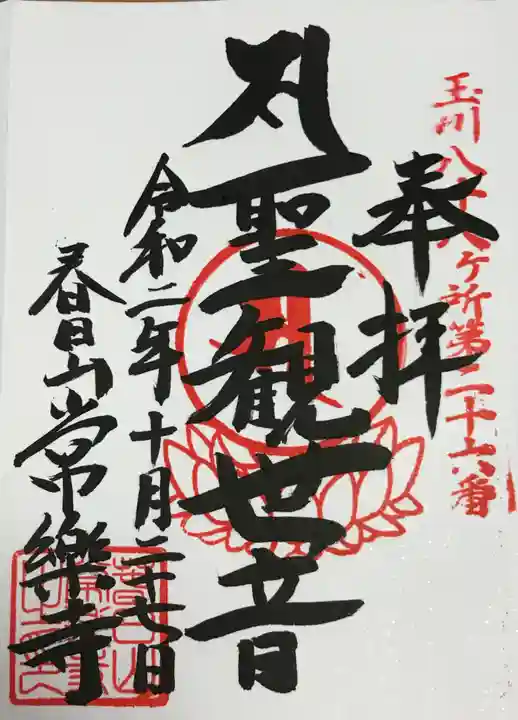 玉川八十八ケ所第二十六番
奉拝
聖観世音
令和二年十月二十七日
春日山常樂寺